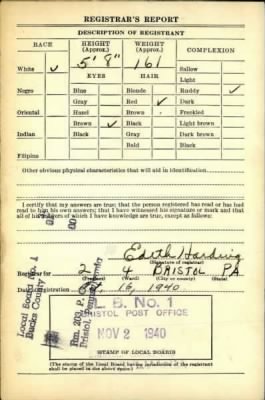 REGISTRAR'S REPORT
DESCRIPTION OF REGISTRANT
RACE HEIGHT (Approx.) WEIGHT (Approx.) COMPLEXION
5' 8" 161
White ✓ EYES HAIR Sallow
Light
Negro Blue Blonde Ruddy ✓
Gray Red ✓ Dark
Oriental Hazel Brown Freckled
Brown ✓ Black Light brown
Indian Black Gray Dark brown
Bald Black
Filipino
Other obvious physical characteristics that will aid in identification
I certify that my answers are true; that the person registered has read or has had
read to him his own answers; that I have witnessed his signature or mark and that
all of his answers of which I have knowledge are true, except as follows:
Edith Harding
(Signature of registrar)
Registrar for 2 4 BRISTOL PA
(Ward) (City or county) (State)
Date of registration Oct. 16, 1940
Local Board No. 1
Bucks County
Rm. 202, P.
Bristol,
L. B. No. 1
BRISTOL POST OFFICE
NOV 2 1940
STAMP OF LOCAL BOARD
(The stamp of the Local Board having jurisdiction of the registrant
shall be placed in the above space.)